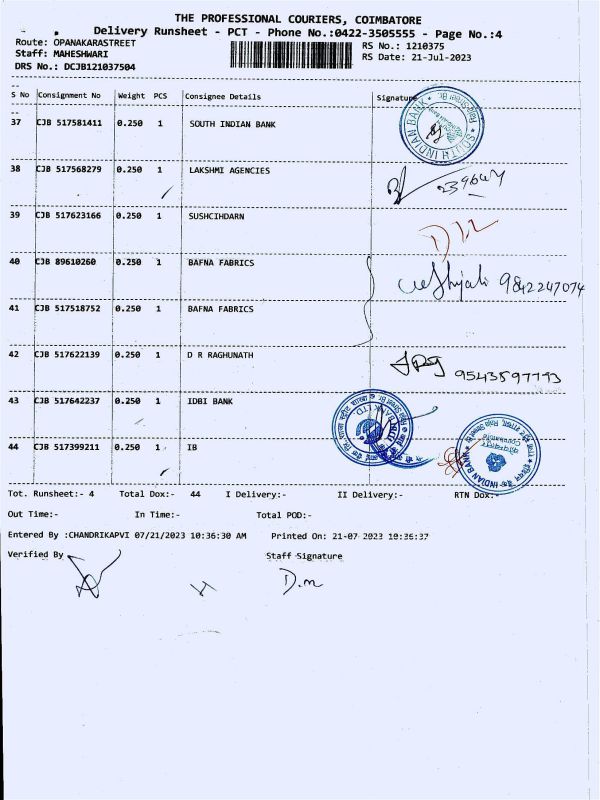 THE PROFESSIONAL COURIERS, COIMBATORE
Delivery Runsheet - PCT - Phone No.:0422-3505555 - Page No.:4
Route: OPANAKARASTREET RS No.: 1210375
Staff: MAHESHWARI RS Date: 21-Jul-2023
DRS No.: DCJB121037504
S No Consignment No Weight PCS Consignee Details Signature
37 CJB 517581411 0.250 1 SOUTH INDIAN BANK
SOUTH INDIAN BANK
38 CJB 517568279 0.250 1 LAKSHMI AGENCIES
39 CJB 517623166 0.250 1 SUSHCIHDARN
40 CJB 89610260 0.250 1 BAFNA FABRICS
9842247074
41 CJB 517518752 0.250 1 BAFNA FABRICS
42 CJB 517622139 0.250 1 D R RAGHUNATH
9543597793
43 CJB 517642237 0.250 1 IDBI BANK
44 CJB 517399211 0.250 1 IB
INDIAN BANK
Tot. Runsheet:- 4 Total Dox:- 44 I Delivery:- II Delivery:- RTN Dox:-
Out Time:- In Time:- Total POD:-
Entered By :CHANDRIKAPVI 07/21/2023 10:36:30 AM Printed On: 21-07-2023 10:36:37
Verified By Staff Signature
D.m